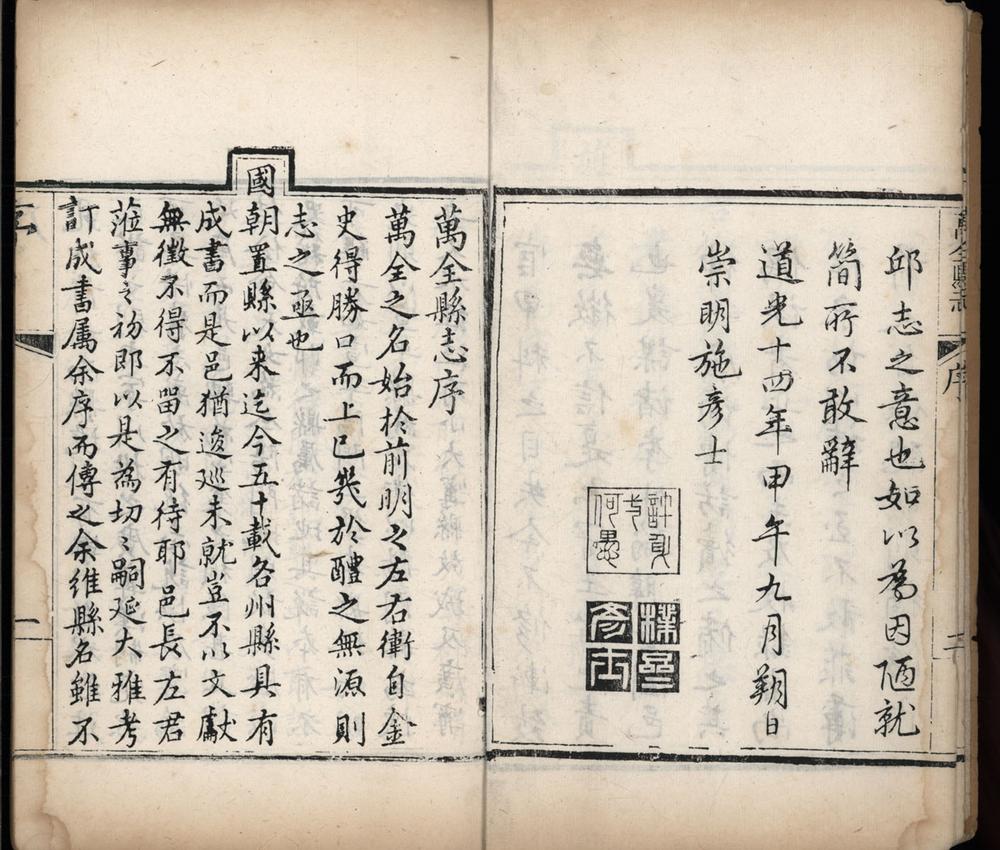 萬全縣志
序
二
邱志之意也如以為因陋就
簡所不敢辭
道光十四年甲午九月朔日
崇明施彥士
樸邑
彥士
萬全縣志序
萬全之名始於前明之左右衛自金
史得勝口而上已幾於醴之無源則
志之亟也
國朝置縣以来迄今五十載各州縣具有
成書而是邑猶逡巡未就豈不以文獻
無徵不得不畱之有待耶邑長左君
蒞事之初即以是為切〻嗣延大雅考
訂成書属余序而傳之余維縣名雖不
一